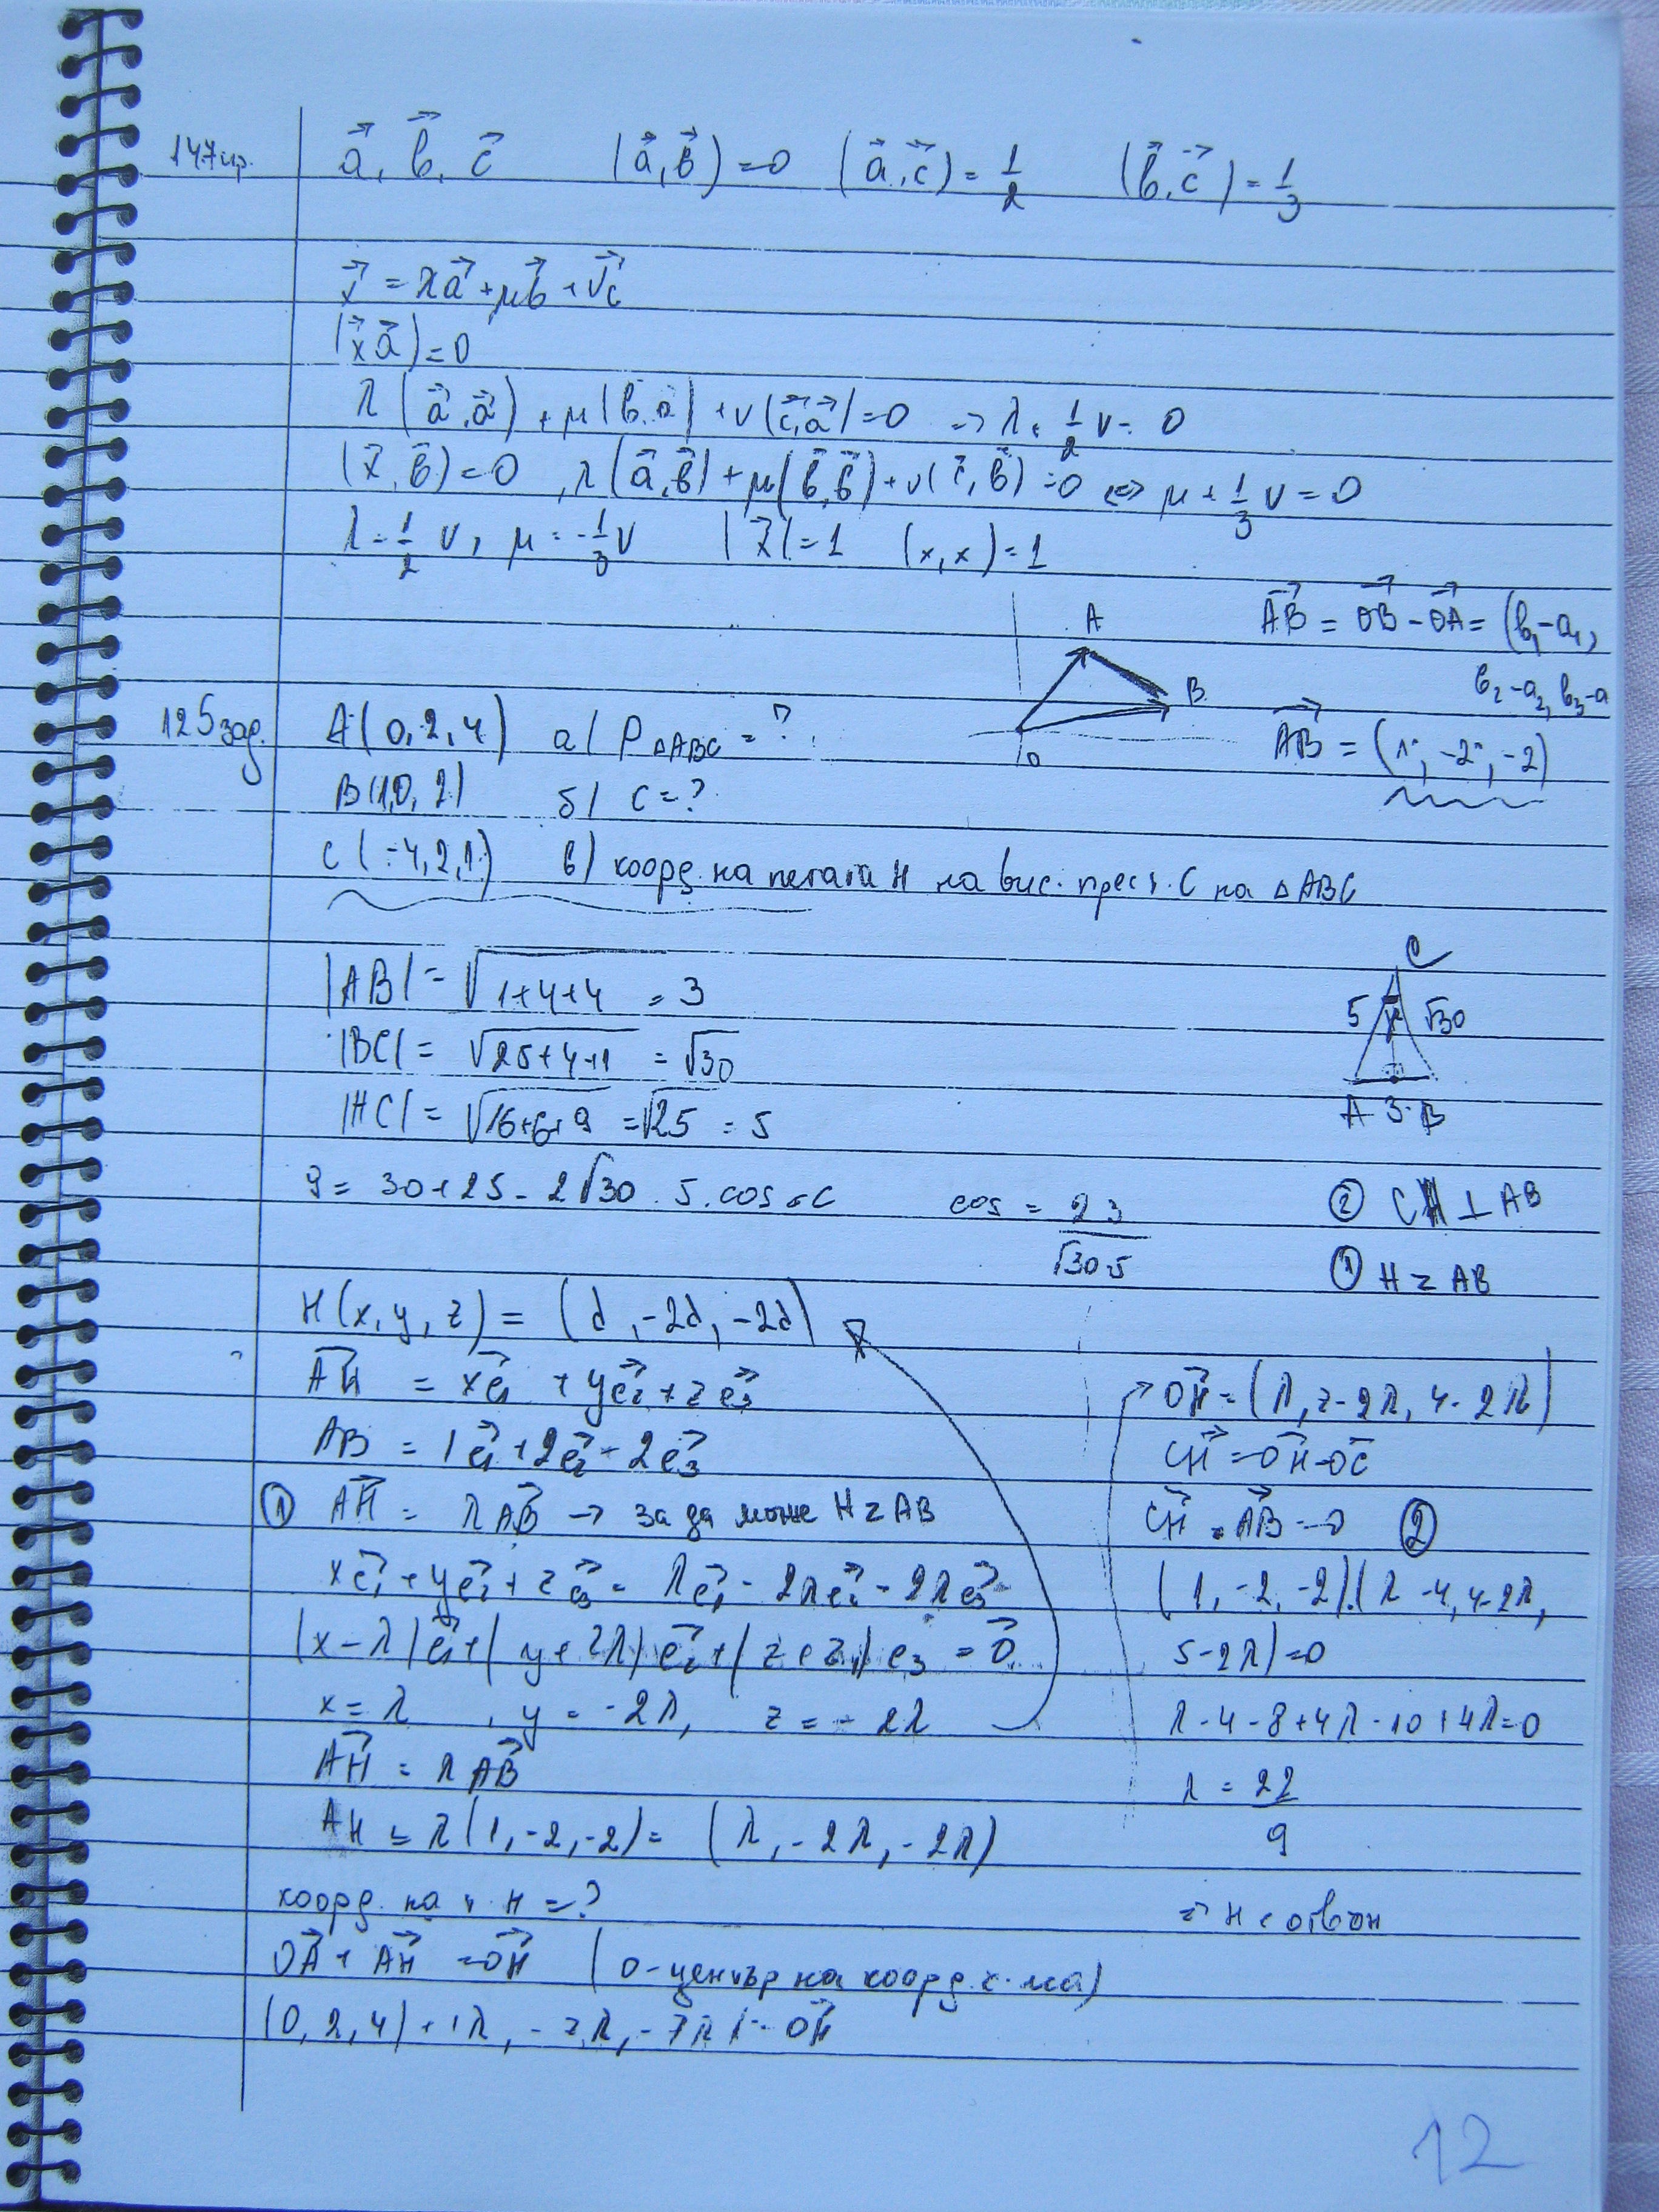 147
a⃗, b⃗, c⃗ (a⃗, b⃗) = 0 (a⃗, c⃗) = 1/2 (b⃗, c⃗) = 1/3
x⃗ = λa⃗ + μb⃗ + νc⃗
(x⃗ a⃗) = 0
λ(a⃗, a⃗) + μ(b, a) + ν(c⃗, a⃗) = 0 → λ + 1/2 ν = 0
(x⃗, b⃗) = 0, λ(a⃗, b⃗) + μ(b⃗, b⃗) + ν(c⃗, b⃗) = 0 ⇔ μ + 1/3 ν = 0
λ = 1/2 ν, μ = -1/3 ν |x⃗| = 1 (x, x) = 1
A
B
O
AB⃗ = OB⃗ - OA⃗ = (b₁-a₁,
b₂-a₂, b₃-a
AB⃗ = (1, -2, -2)
125 зад.
A(0, 2, 4) a/ P△ABC = ?
B(1,0, 2) б/ C = ?
C(-4, 2, 1) в) коорд. на петата H на вис. през т. C на △ABC
|AB| = √1+4+4 = 3
|BC| = √25+4+1 = √30
|HC| = √16+6+9 = √25 = 5
C
5 √30
A 3 B
9 = 30+25 - 2√30 . 5 . cos C cos = 23/√30·5
② CH ⊥ AB
① H z AB
H(x, y, z) = (λ, -2λ, -2λ)
AH⃗ = xe₁⃗ + ye₂⃗ + ze₃⃗
AB = 1e₁⃗ + 2e₂⃗ - 2e₃⃗
① AH⃗ = λAB⃗ → за да може H z AB
xe₁⃗ + ye₂⃗ + ze₃⃗ = λe₁⃗ - 2λe₂⃗ - 2λe₃⃗
(x-λ)e₁⃗ + (y+2λ)e₂⃗ + (z e₃ = 0⃗
x = λ, y = -2λ, z = -2λ
AH⃗ = λAB⃗
AH = λ(1, -2, -2) = (λ, -2λ, -2λ)
коорд. на т. H = ?
OA⃗ + AH⃗ = OH⃗ (O - център на коорд. с-ма)
(0, 2, 4) + (λ, -2λ, -2λ) = OH⃗
OH⃗ = (λ, 2-2λ, 4-2λ)
CH⃗ = OH⃗ - OC⃗
CH⃗ . AB⃗ = 0 ②
(1, -2, -2).(λ -4, 4-2λ,
5-2λ) = 0
λ - 4 - 8 + 4λ - 10 + 4λ = 0
λ = 22/9
⇒ H е отвън
12